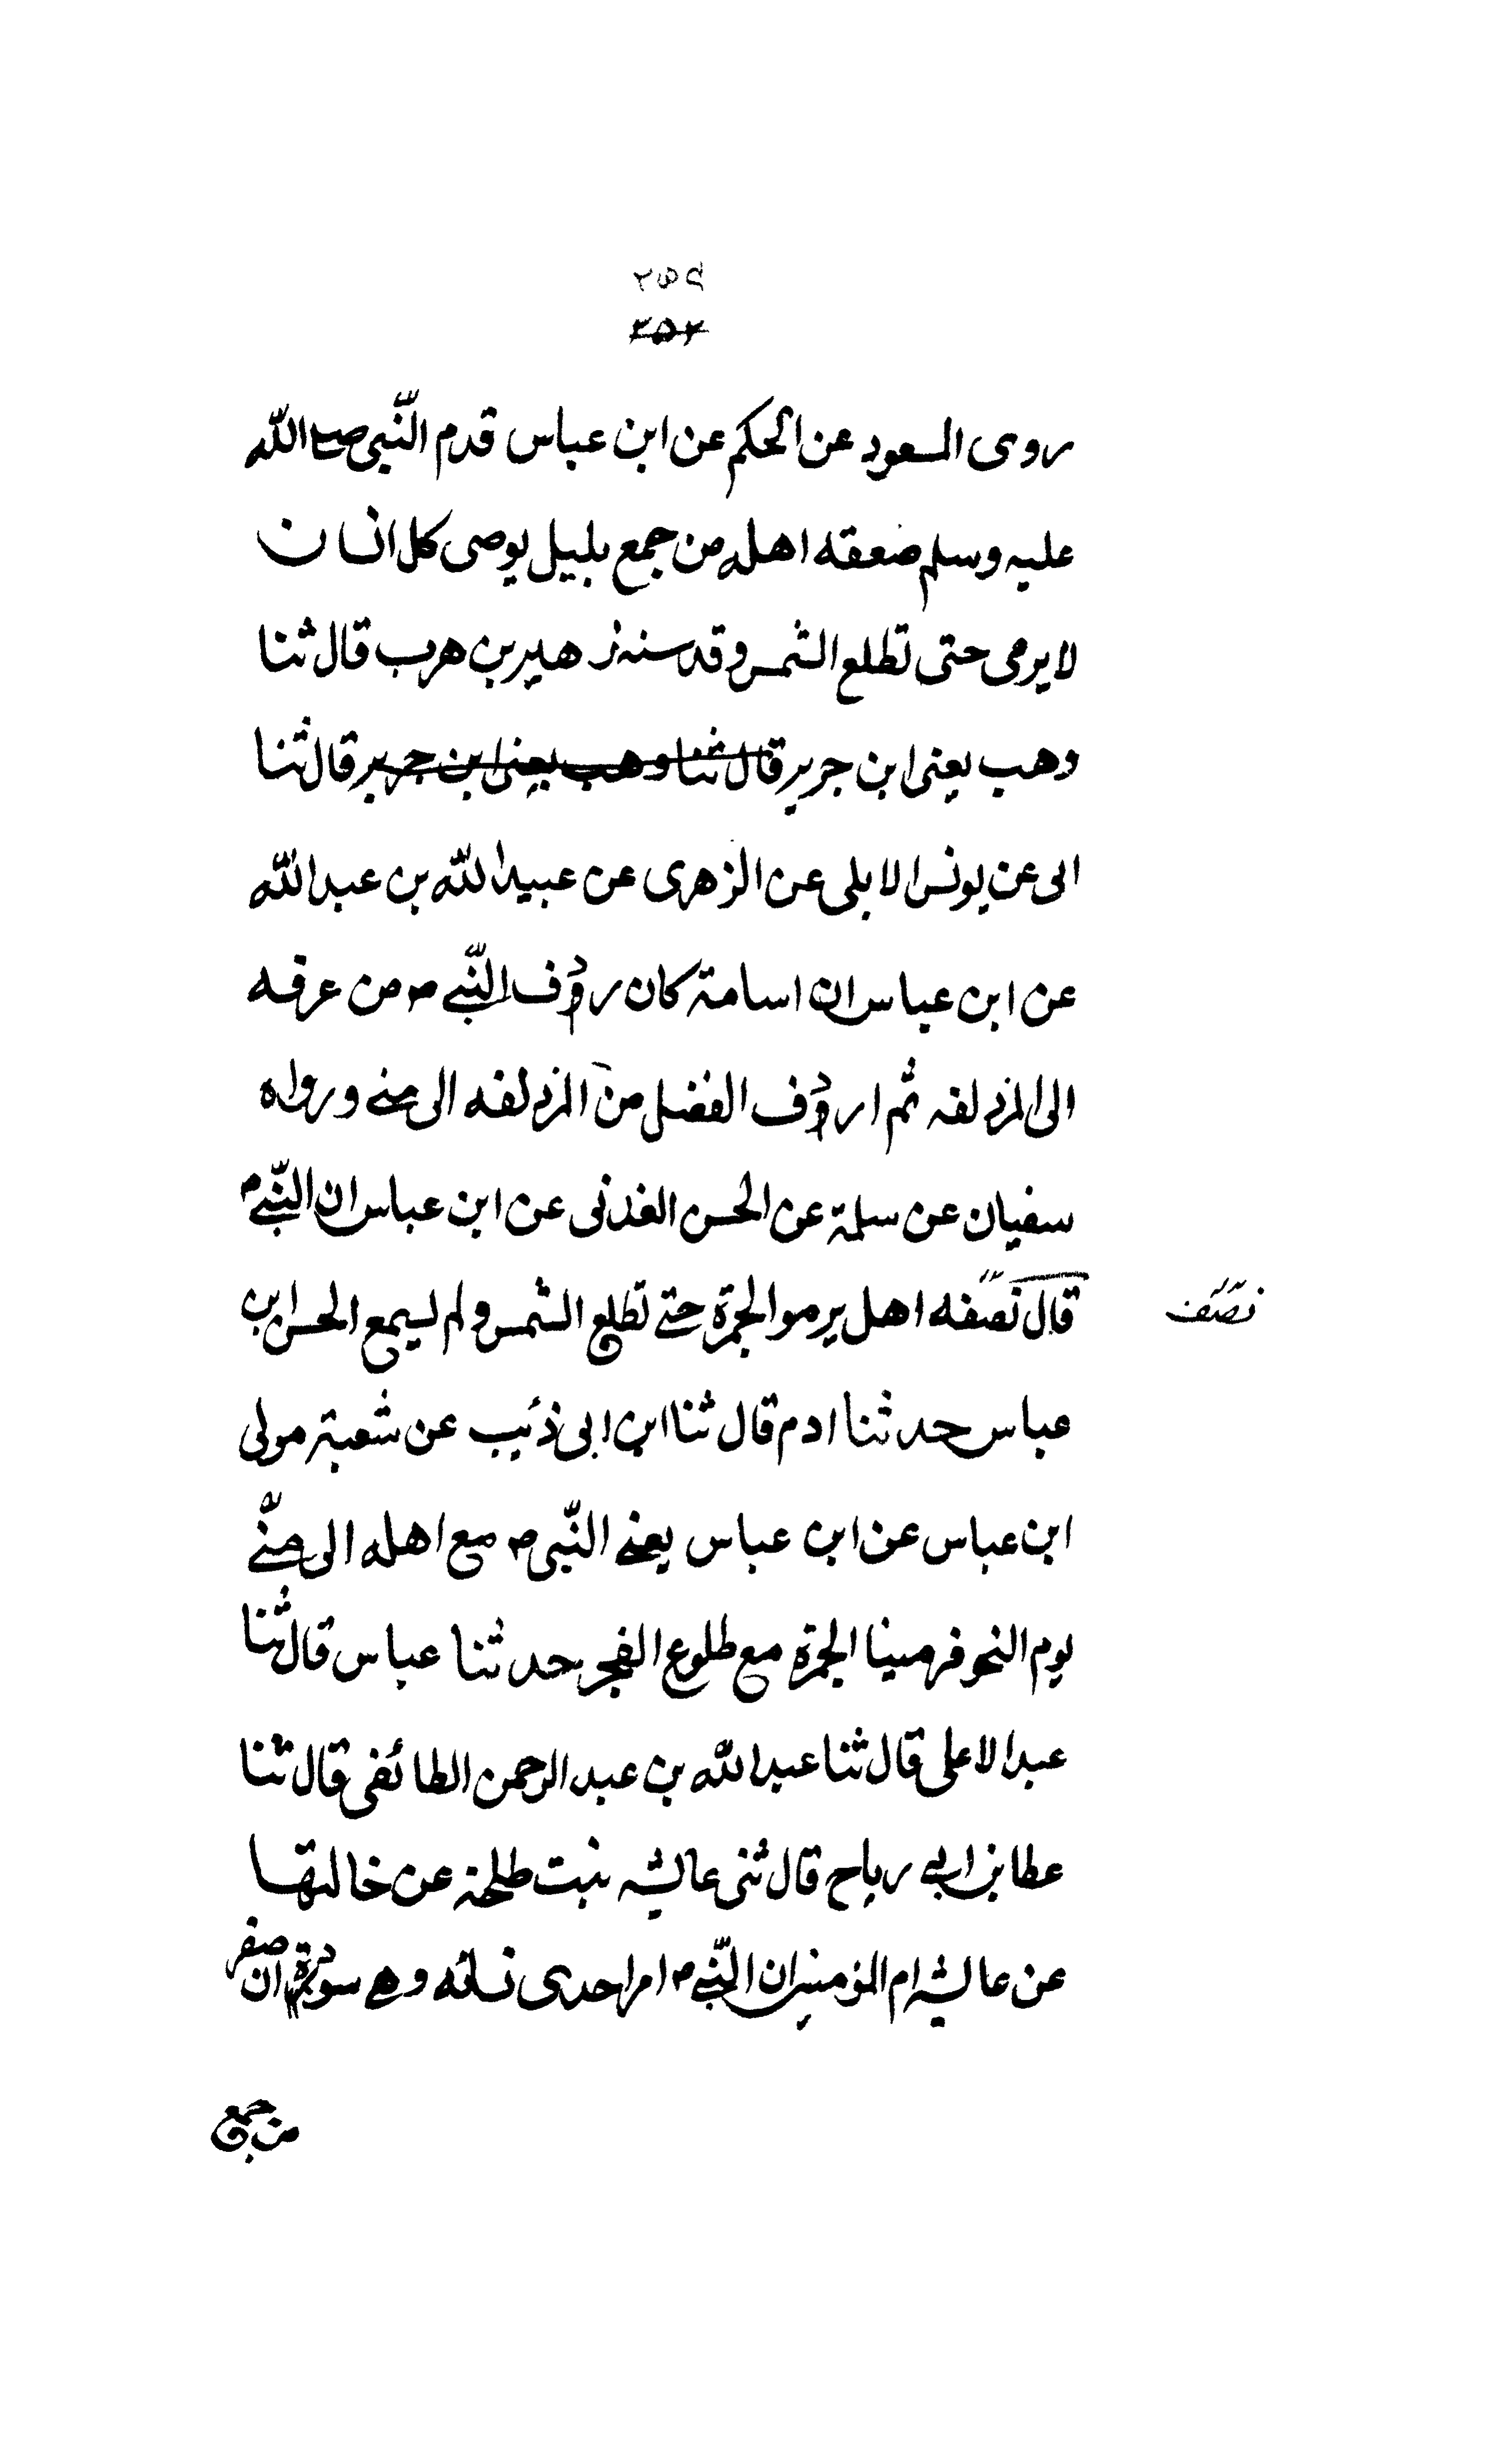 ٢٥٩
٢٥٢
روى المسعود عن الحكم عن ابن عباس قدم النّبى صلى الله
عليه وسلم ضعقه اهله من جمع بليل يوصى كل انسان
لا يرمى حتى تطلع الشمس وقد سنه زهير بن هرب قال ثنا
وهب يعنى ابن جرير قال ثنا وهب يعنى ابن جرير قال ثنا
ابى عن يونس الابلى عن الزهرى عن عبيد الله بن عبد الله
عن ابن عباس ان اسامة كان ردف النّبى ص من عرفه
الى المزدلفه ثم اردف الفضل من المزدلفه الى منى ورواه
سفيان عن سلمة عن الحسن الغدنى عن ابن عباس ان النّبى ص
قال نصفه اهل يرموا الجمرة حتى تطلع الشمس ولم يسمع الحسن ابن
نصف
عباس حدثنا ادم قال ثنا ابن ابى ذئيب عن شعبة مولى
ابن عباس عن ابن عباس يعنى النّبى ص مع اهله الى منّى
يوم النحو فرمينا الجمرة مع طلوع الفجر حدثنا عباس قال ثنا
عبد الاعلى قال ثنا عبد الله بن عبد الرحمن الطائفى قال ثنا
عطا بن ابى رباح قال ثنى عايشه بنت طلحة عن خالتها
عن عايشه ام المؤمنين ان النّبى ص امر احدى نسائه وهى سودة ان صفر
من جمع